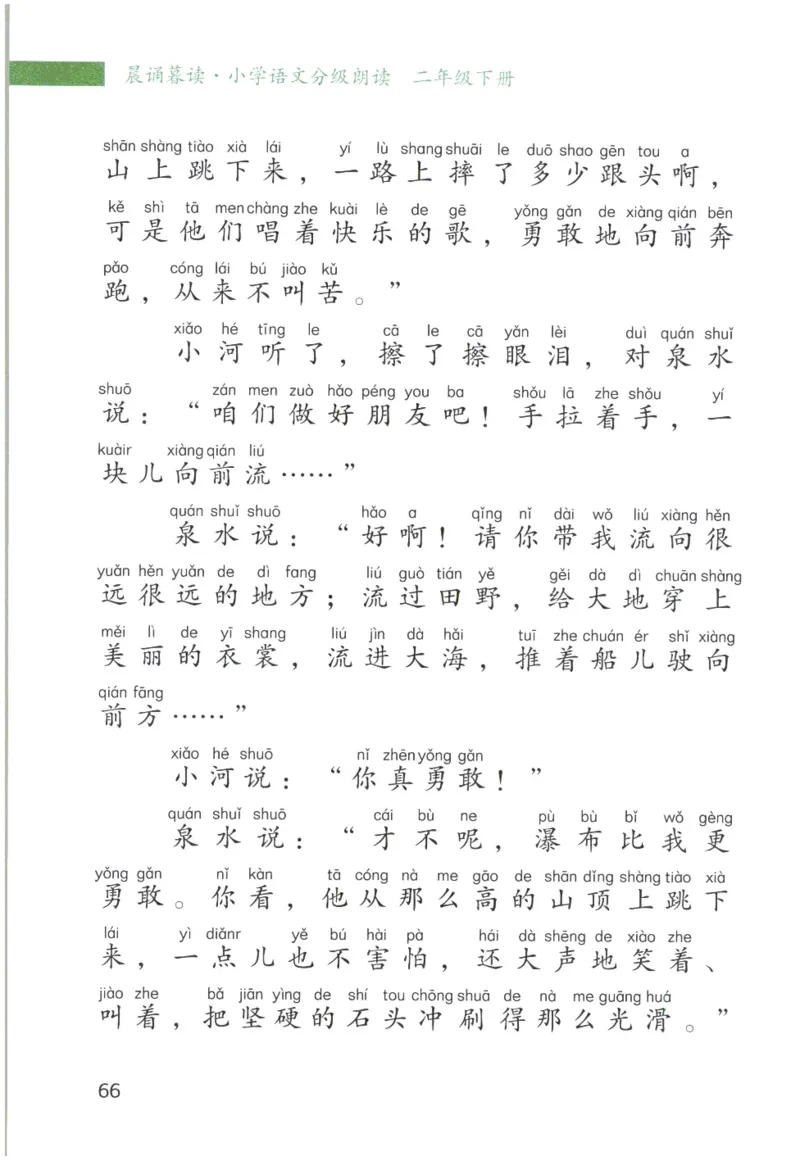 晨诵暮读·小学语文分级朗读 二年级下册
shān shàng tiào xià lái yí lù shang shuāi le duō shao gēn tou a
山上跳下来，一路上摔了多少跟头啊，
kě shì tā men chàng zhe kuài lè de gē yǒng gǎn de xiàng qián bēn
可是他们唱着快乐的歌，勇敢地向前奔
pǎo cóng lái bú jiào kǔ
跑，从来不叫苦。”
xiǎo hé tīng le cā le cā yǎn lèi duì quán shuǐ
小河听了，擦了擦眼泪，对泉水
shuō zán men zuò hǎo péng you ba shǒu lā zhe shǒu yí
说：“咱们做好朋友吧！手拉着手，一
kuàir xiàng qián liú
块儿向前流……”
quán shuǐ shuō hǎo a qǐng nǐ dài wǒ liú xiàng hěn
泉水说：“好啊！请你带我流向很
yuǎn hěn yuǎn de dì fang liú guò tián yě gěi dà dì chuān shàng
远很远的地方；流过田野，给大地穿上
měi lì de yī shang liú jìn dà hǎi tuī zhe chuán ér shǐ xiàng
美丽的衣裳，流进大海，推着船儿驶向
qián fāng
前方……”
xiǎo hé shuō nǐ zhēn yǒng gǎn
小河说：“你真勇敢！”
quán shuǐ shuō cái bù ne pù bù bǐ wǒ gèng
泉水说：“才不呢，瀑布比我更
yǒng gǎn nǐ kàn tā cóng nà me gāo de shān dǐng shàng tiào xià
勇敢。你看，他从那么高的山顶上跳下
lái yì diǎnr yě bú hài pà hái dà shēng de xiào zhe
来，一点儿也不害怕，还大声地笑着、
jiào zhe bǎ jiān yìng de shí tou chōng shuā de nà me guāng huá
叫着，把坚硬的石头冲刷得那么光滑。”
66